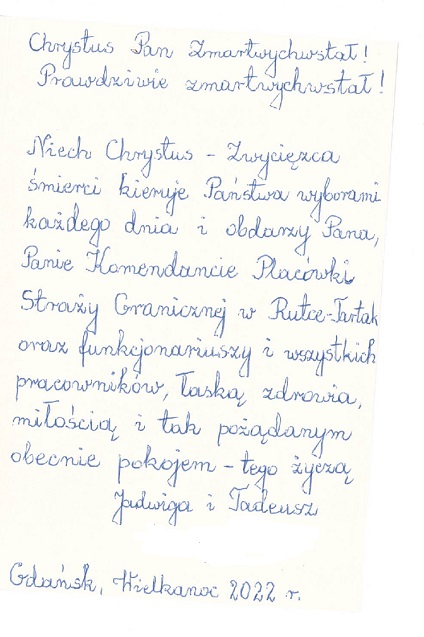 Chrystus Pan Zmartwychwstał!
Prawdziwie zmartwychwstał!
Niech Chrystus – Zwycięzca
śmierci kieruje Państwa wyborami
każdego dnia i obdarzy Pana,
Panie Komendancie Placówki
Straży Granicznej w Rutce-Tartak
oraz funkcjonariuszy i wszystkich
pracowników, łaską zdrowia,
miłością i tak pożądanym
obecnie pokojem – tego życzą
Jadwiga i Tadeusz
Gdańsk, Wielkanoc 2022 r.